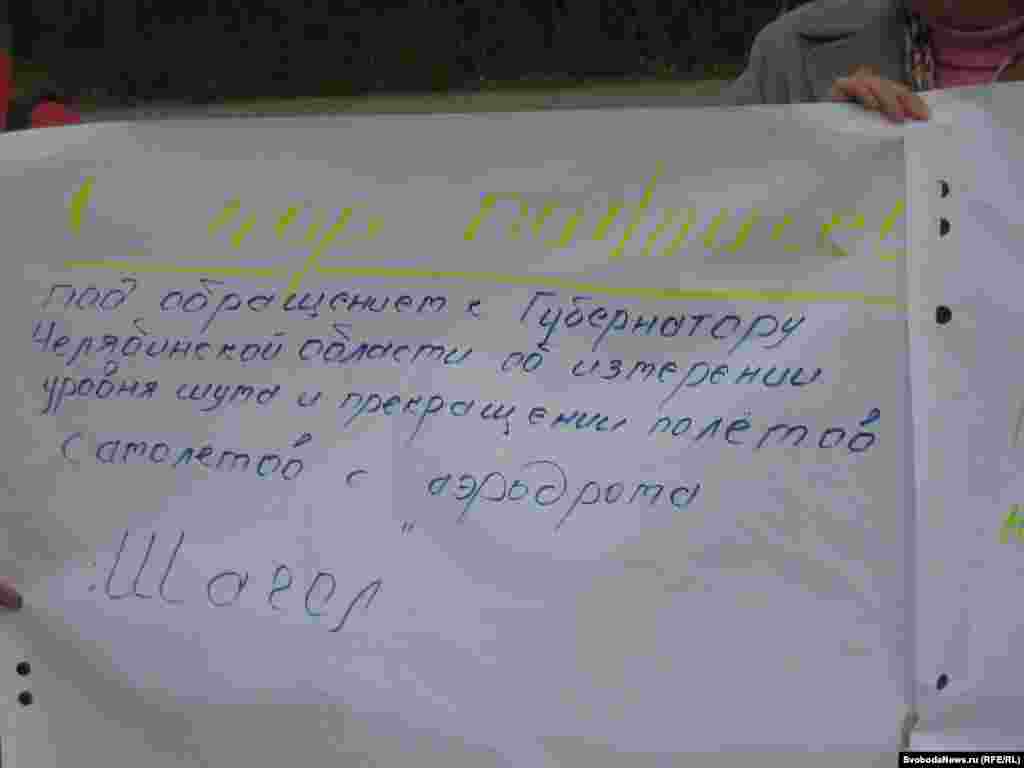 Сбор подписей
под обращением к Губернатору
Челябинской области об измерении
уровня шума и прекращении полётов
самолетов с аэродрома
"Шагол"
SvobodaNews.ru (RFE/RL)